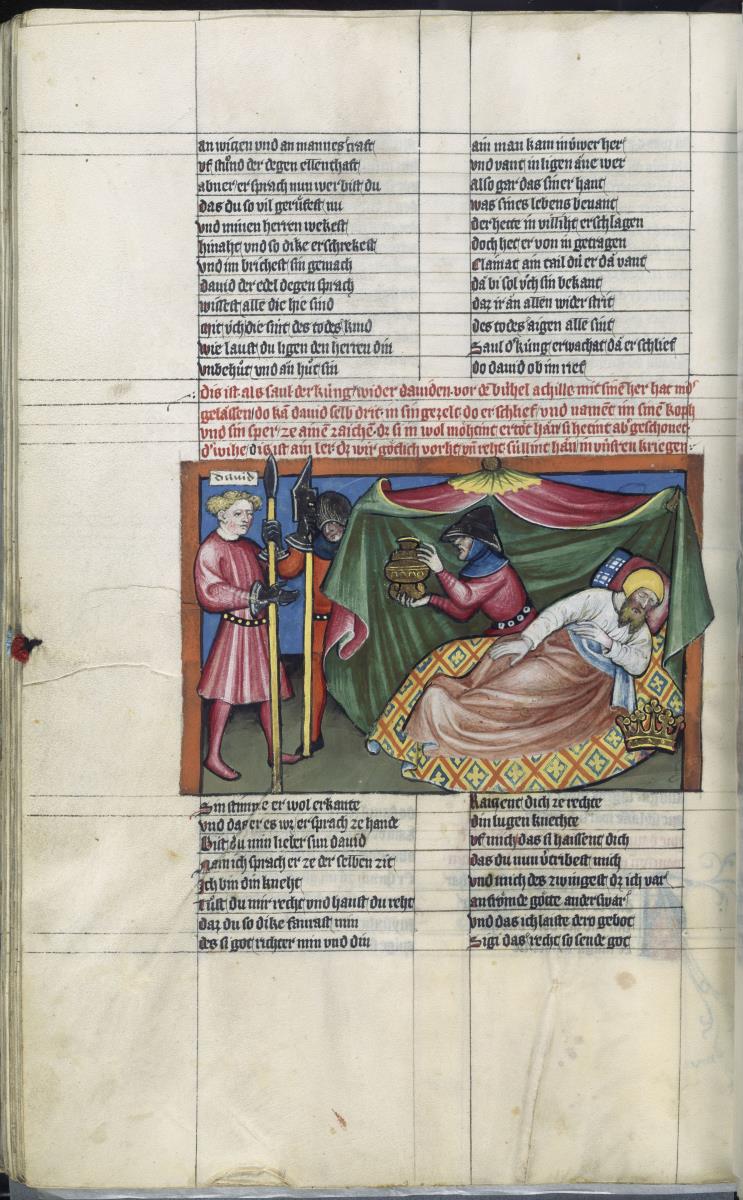 an wiczen vnd an mannes craft
vf stůnd der degen ellenthaft
abner er sprach nun wer bist du
das du so vil gerůfest nu
vnd minen herren wekest
hinaht vnd so dike erschrekest
vnd im brichest sin gemach
dauid der edel degen sprach
wissest alle die hie sind
mit üch die sint des todes kind
wie laust du ligen den herren din
vnbehůt vnd an hůt sin
ain man kam in ùwer her
vnd vant in ligen ane wer
also gar das siner hant
was sines lebens bevant
der hette in villiht erschlagen
doch het er von im getragen
Clainat ain tail dù er da vant
da bi sol ùch sin bekant
daz ir an allen wider strit
des todes aigen alle sint
Saul d' kùng erwachat da er schlief
do dauid ob im rief
dis ist als saul der kùng wider dauiden vor dē bùhel achille mit sinē her hat
gelassen do kā dauid selb drit in sin gezelt do er schlief vnd namēt im sinē koph
vnd sin sper ze ainē zaichē dz si in wol mohtint ertöt hān si hetint ab' geschonet
d' wihe dis ist ain ler dz wir götlich vorht vn̄ reht sùllint hān in vnsren kriegen
dauid
Sin stimme er wol erkante
vnd daz er es wz er sprach ze hande
Bist du min lieber sun dauid
Nain ich sprach er ze der selben zit
Ich bin din kneht
tůst du mir recht vnd haust du reht
daz du so dike faurast min
des si got richter min vnd din
Raigent dich ze rechte
din lugen knechte
vf mich das si haissent dich
das du nun v'tribest mich
vnd mich des zwingest dz ich var
an frömde götte anderswar
vnd das ich laiste dero gebot
Sigi das recht so sende got